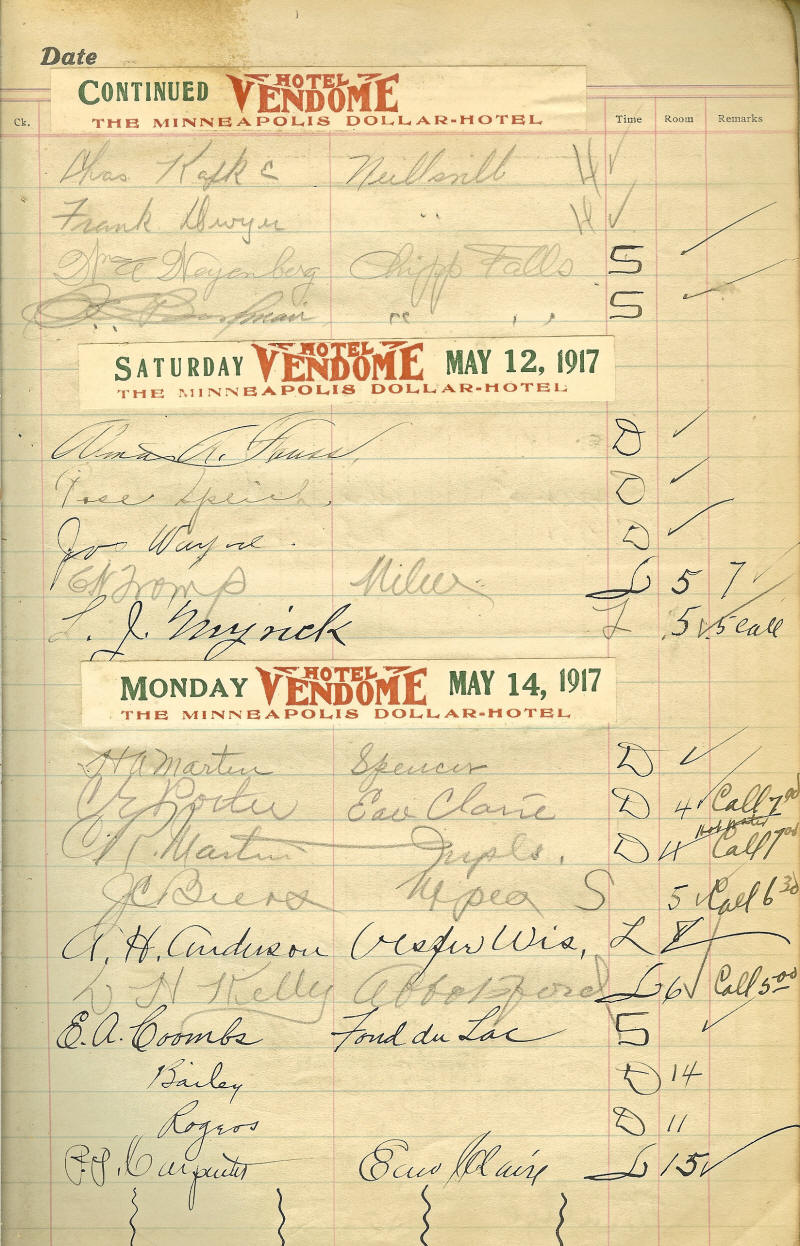 Date
CONTINUED HOTEL VENDOME
THE MINNEAPOLIS DOLLAR-HOTEL
Ck. Time Room Remarks
Chas H ✓
Frank Dwyer " H ✓
Neyenberg Chipp Falls S ✓
" " " S ✓
SATURDAY HOTEL VENDOME MAY 12, 1917
THE MINNEAPOLIS DOLLAR-HOTEL
A. D ✓
Speich. D ✓
Jos Wayne. D ✓
Tromp L 5 7
L. J. Myrick L 5 ✓ 5 Call
MONDAY HOTEL VENDOME MAY 14, 1917
THE MINNEAPOLIS DOLLAR-HOTEL
H A Martin Spencer D ✓
C E Porter Eau Claire D 4 ✓ Call 7 00
C R. Martin Mpls. D 4 Call 7 00
J C Biers S 5 ✓ Call 6 30
A. H. Anderson Vesper Wis, L
H Kelly Abbotsford L 6 ✓ Call 5 00
E. A. Coombs Fond du Lac S ✓
Bailey D 14
Rogers D 11
Carpenter Eau Claire L 15 ✓